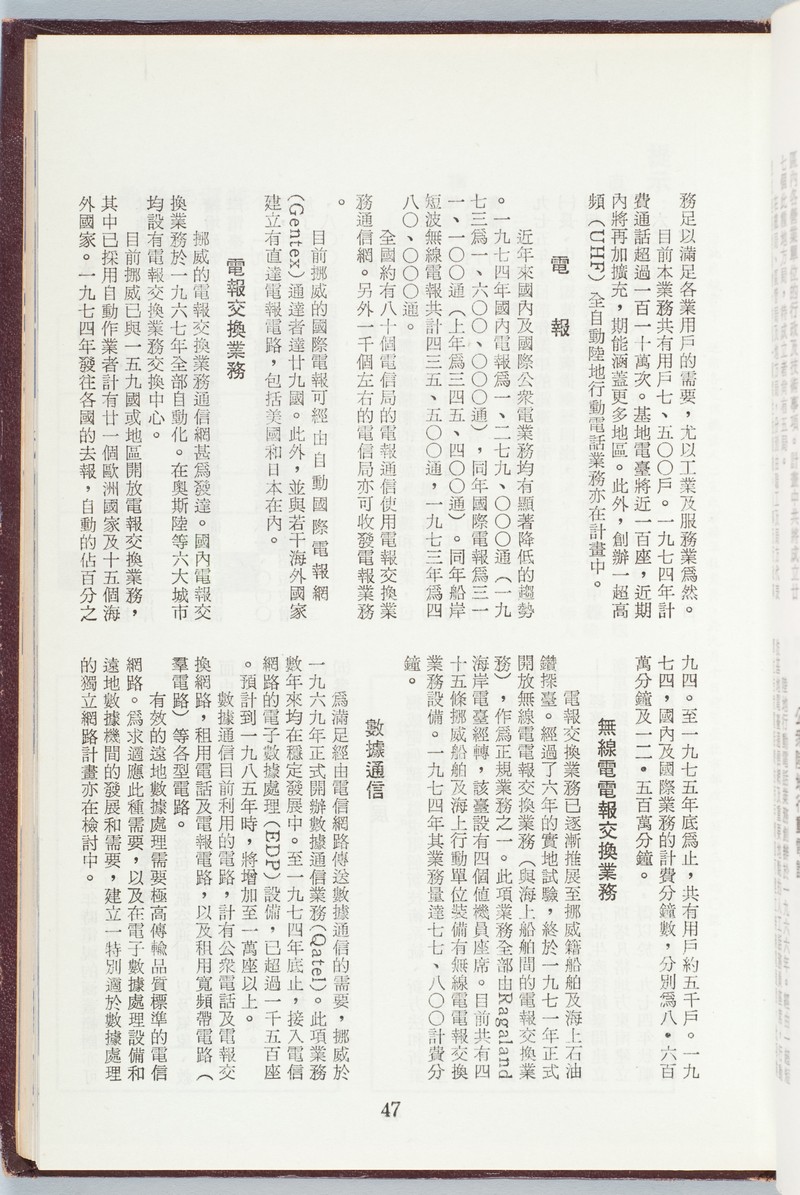 務足以滿足各業用戶的需要，尤以工業及服務業爲然。
目前本業務共有用戶七、五〇〇戶。一九七四年計
費通話超過一百一十萬次。基地電臺將近一百座，近期
內將再加擴充，期能涵蓋更多地區。此外，創辦一超高
頻（UHF）全自動陸地行動電話業務亦在計畫中。
電報
近年來國內及國際公衆電業務均有顯著降低的趨勢
。一九七四年國內電報爲一、二七九、〇〇〇通（一九
七三爲一、六〇〇、〇〇〇通），同年國際電報爲三一
一、一〇〇通（上年爲三四五、四〇〇通）。同年船岸
短波無線電報共計四三五、五〇〇通，一九七三年爲四
八〇、〇〇〇通。
全國約有八十個電信局的電報通信使用電報交換業
務通信網。另外一千個左右的電信局亦可收發電報業務
。
目前挪威的國際電報可經由自動國際電報網
（Gentex）通達者達廿九國。此外，並與若干海外國家
建立有直達電報電路，包括美國和日本在內。
電報交換業務
挪威的電報交換業務通信網甚爲發達。國內電報交
換業務於一九六七年全部自動化。在奧斯陸等六大城市
均設有電報交換業務交換中心。
目前挪威已與一五九國或地區開放電報交換業務，
其中已採用自動作業者計有廿一個歐洲國家及十五個海
外國家。一九七四年發往各國的去報，自動的佔百分之
九四。至一九七五年底爲止，共有用戶約五千戶。一九
七四，國內及國際業務的計費分鐘數，分別爲八·六百
萬分鐘及一二·五百萬分鐘。
無線電電報交換業務
電報交換業務已逐漸推展至挪威籍船舶及海上石油
鑽探臺。經過了六年的實地試驗，終於一九七一年正式
開放無線電電報交換業務（與海上船舶間的電報交換業
務），作爲正規業務之一。此項業務全部由Ragaland
海岸電臺經轉，該臺設有四個値機員座席。目前共有四
十五條挪威船舶及海上行動單位裝備有無線電電報交換
業務設備。一九七四年其業務量達七七、八〇〇計費分
鐘。
數據通信
爲滿足經由電信網路傳送數據通信的需要，挪威於
一九六九年正式開辦數據通信業務（Qatel）。此項業務
數年來均在穩定發展中。至一九七四年底止，接入電信
網路的電子數據處理（EDP）設備，已超過一千五百座
。預計到一九八五年時，將增加至一萬座以上。
數據通信目前利用的電路，計有公衆電話及電報交
換網路，租用電話及電報電路，以及租用寬頻帶電路（
羣電路）等各型電路。
有效的遠地數據處理需要極高傳輸品質標準的電信
網路。爲求適應此種需要，以及在電子數據處理設備和
遠地數據機間的發展和需要，建立一特別適於數據處理
的獨立網路計畫亦在檢討中。
47